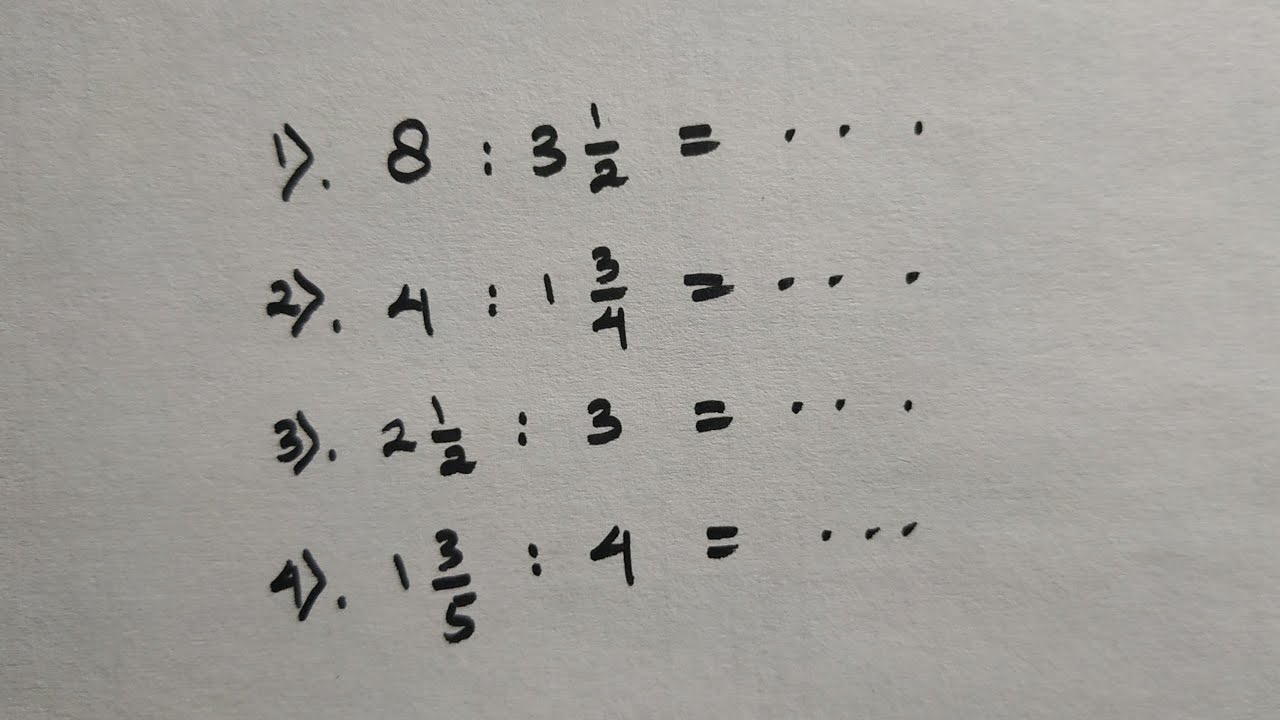 1). 8 : 3 1/2 = ...
2). 4 : 1 3/4 = ...
3). 2 1/2 : 3 = ...
4). 1 3/5 : 4 = ...